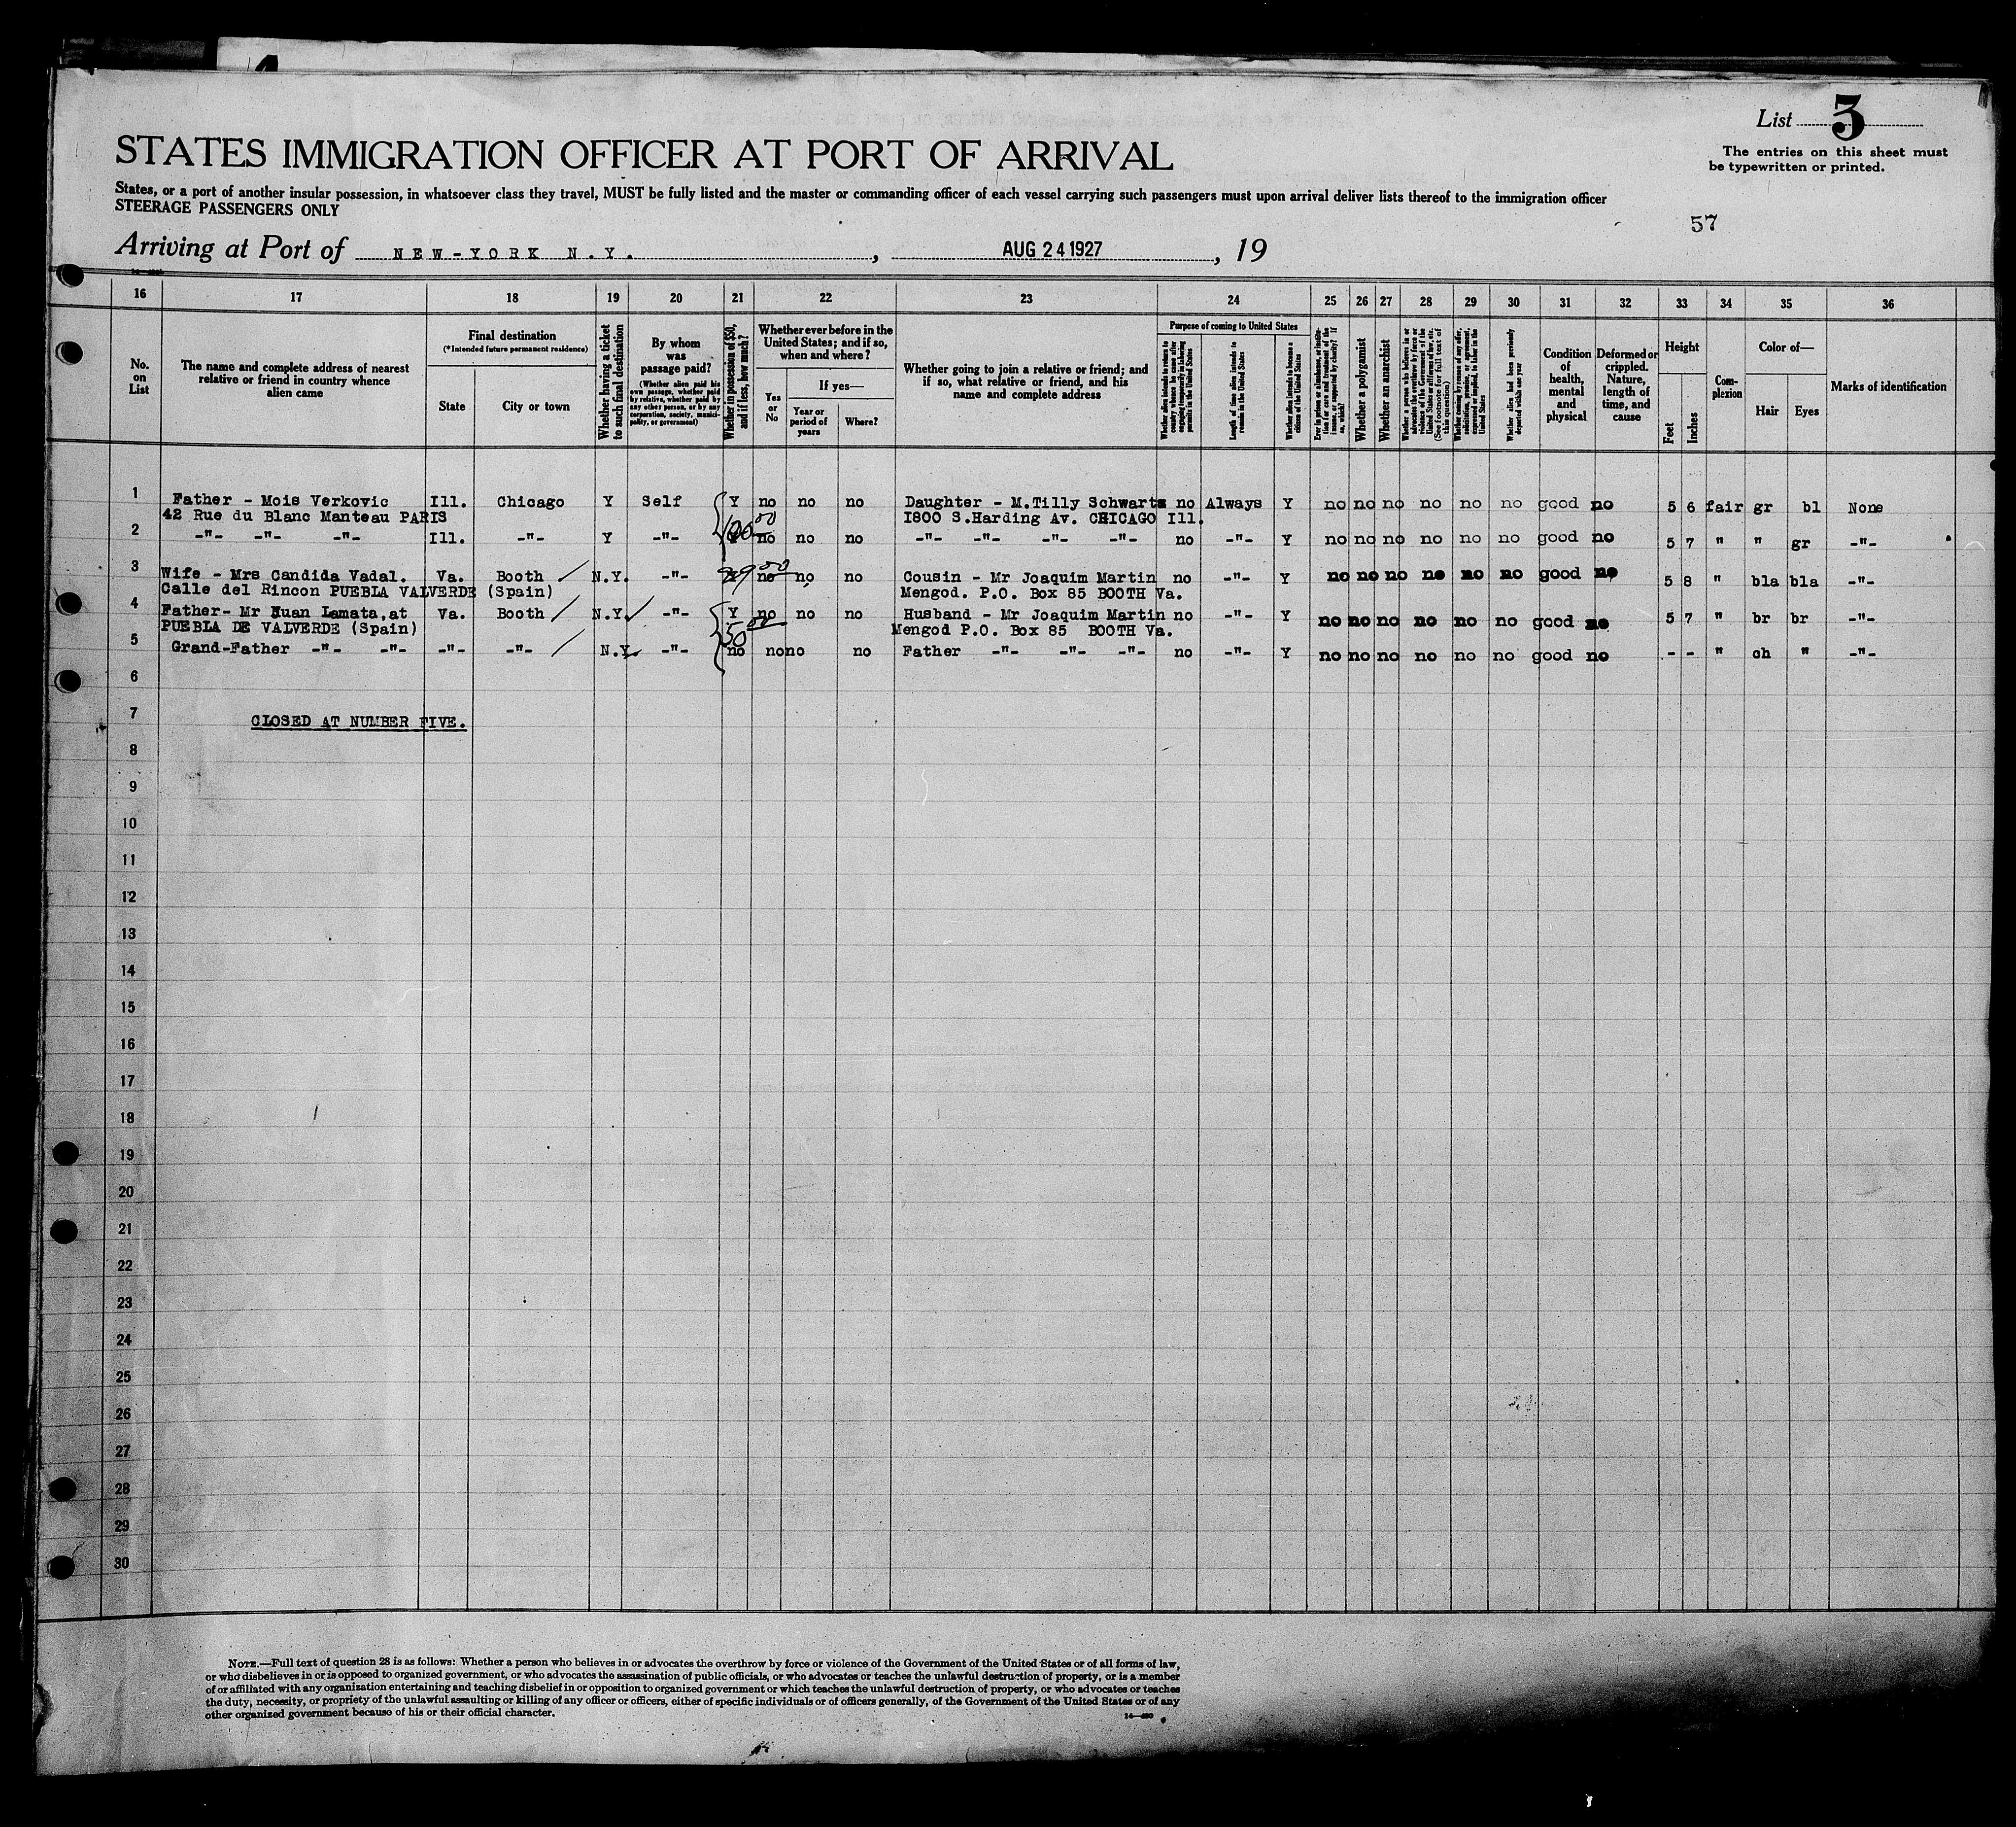 List 3
The entries on this sheet must
be typewritten or printed.
STATES IMMIGRATION OFFICER AT PORT OF ARRIVAL
States, or a port of another insular possession, in whatsoever class they travel, MUST be fully listed and the master or commanding officer of each vessel carrying such passengers must upon arrival deliver lists thereof to the immigration officer
STEERAGE PASSENGERS ONLY
57
Arriving at Port of NEW-YORK N.Y. , AUG 24 1927 , 19
16 17 18 19 20 21 22 23 24 25 26 27 28 29 30 31 32 33 34 35 36
No. on List
The name and complete address of nearest relative or friend in country whence alien came
Final destination
(*Intended future permanent residence)
State
City or town
Whether having a ticket to such final destination
By whom was passage paid?
(Whether alien paid his own passage, whether paid by relative, whether paid by any other person, or by any corporation, society, municipality, or government)
Whether in possession of $50, and if less, how much?
Whether ever before in the United States; and if so, when and where?
Yes or No
If yes—
Year or period of years
Where?
Whether going to join a relative or friend; and if so, what relative or friend, and his name and complete address
Purpose of coming to United States
Whether alien intends to return to country whence he came after engaging temporarily in laboring pursuits in the United States
Length of time alien intends to remain in the United States
Whether alien intends to become a citizen of the United States
Ever in prison or almshouse, or institution for care and treatment of the insane, or supported by charity? If so, which?
Whether a polygamist
Whether an anarchist
Whether a person who believes in or advocates the overthrow by force or violence of the Government of the United States or all forms of law, etc. (See footnote for full text of this question)
Whether coming by reason of any offer, solicitation, promise, or agreement, expressed or implied, to labor in the United States
Whether alien had been previously deported within one year
Condition of health, mental and physical
Deformed or crippled. Nature, length of time, and cause
Height
Feet
Inches
Complexion
Color of—
Hair
Eyes
Marks of identification
1 Father - Mois Verkovic Ill. Chicago Y Self Y no no no Daughter - M.Tilly Schwartz no Always Y no no no no no no good no 5 6 fair gr bl None
42 Rue du Blanc Manteau PARIS 1800 S.Harding Av. CHICAGO Ill.
2 -"- -"- -"- Ill. -"- Y -"- 100 00 no no no -"- -"- -"- -"- no -"- Y no no no no no no good no 5 7 " " gr -"-
3 Wife - Mrs Candida Vadal. Va. Booth N.Y. -"- 00 no no no Cousin - Mr Joaquim Martin no -"- Y no no no no no no good no 5 8 " bla bla -"-
Calle del Rincon PUEBLA VALVERDE (Spain) Mengod. P.O. Box 85 BOOTH Va.
4 Father- Mr Juan Lamata,at Va. Booth N.Y. -"- Y no no no Husband - Mr Joaquim Martin no -"- Y no no no no no no good no 5 7 " br br -"-
PUEBLA DE VALVERDE (Spain) 50 00 Mengod P.O. Box 85 BOOTH Va.
5 Grand-Father -"- -"- -"- -"- N.Y. -"- no no no no Father -"- -"- -"- no -"- Y no no no no no no good no - - " ch " -"-
6
7 CLOSED AT NUMBER FIVE.
8
9
10
11
12
13
14
15
16
17
18
19
20
21
22
23
24
25
26
27
28
29
30
NOTE.—Full text of question 28 is as follows: Whether a person who believes in or advocates the overthrow by force or violence of the Government of the United States or of all forms of law,
or who disbelieves in or is opposed to organized government, or who advocates the assassination of public officials, or who advocates or teaches the unlawful destruction of property, or is a member
of or affiliated with any organization entertaining and teaching disbelief in or opposition to organized government or which teaches the unlawful destruction of property, or who advocates or teaches
the duty, necessity, or propriety of the unlawful assaulting or killing of any officer or officers, either of specific individuals or of officers generally, of the Government of the United States or of any
other organized government because of his or their official character.